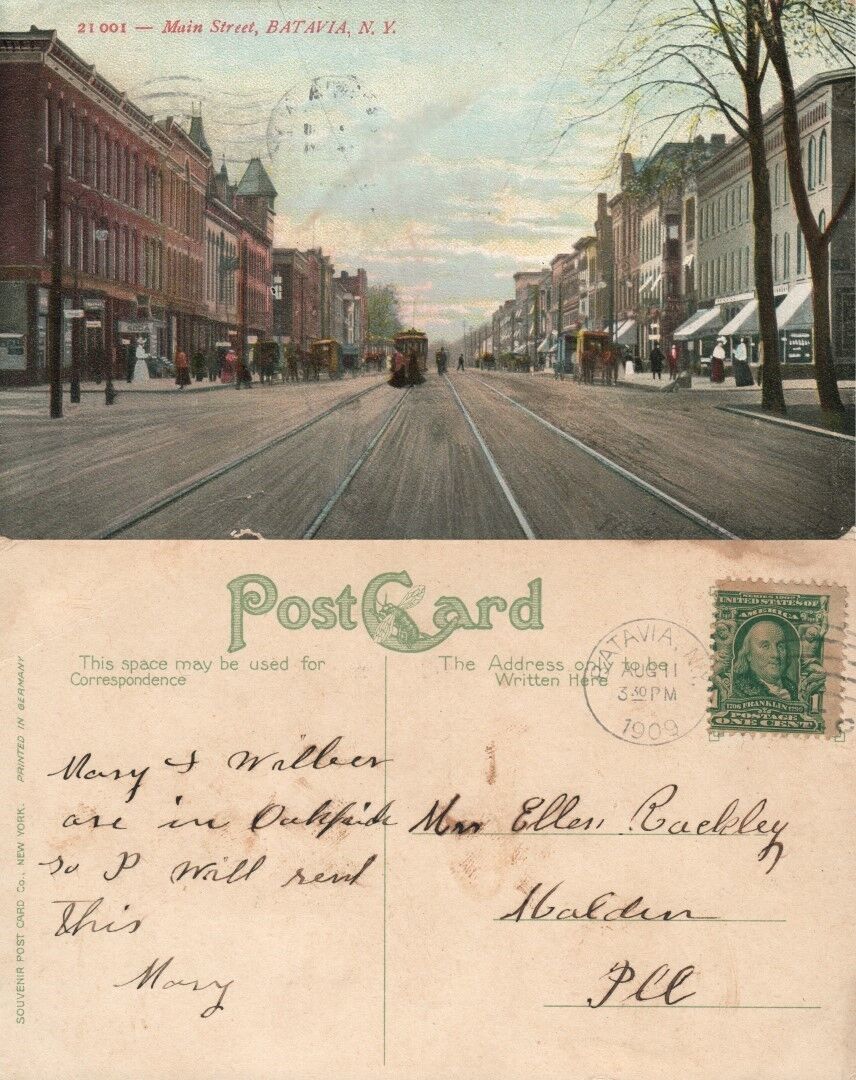 21001 — Main Street, BATAVIA, N. Y.
SODA
PostCard
This space may be used for
Correspondence
The Address only to be
Written Here
BATAVIA, N.Y.
AUG 11
3 30 PM
1909
SERIES 1902
UNITED STATES OF
AMERICA
1706 FRANKLIN 1790
POSTAGE
ONE CENT
1
SOUVENIR POST CARD CO., NEW YORK. PRINTED IN GERMANY
Mary & Wilber
are in Oakfield
so I will send
This
Mary
Mrs Ellen Rockley
Malden
Ill